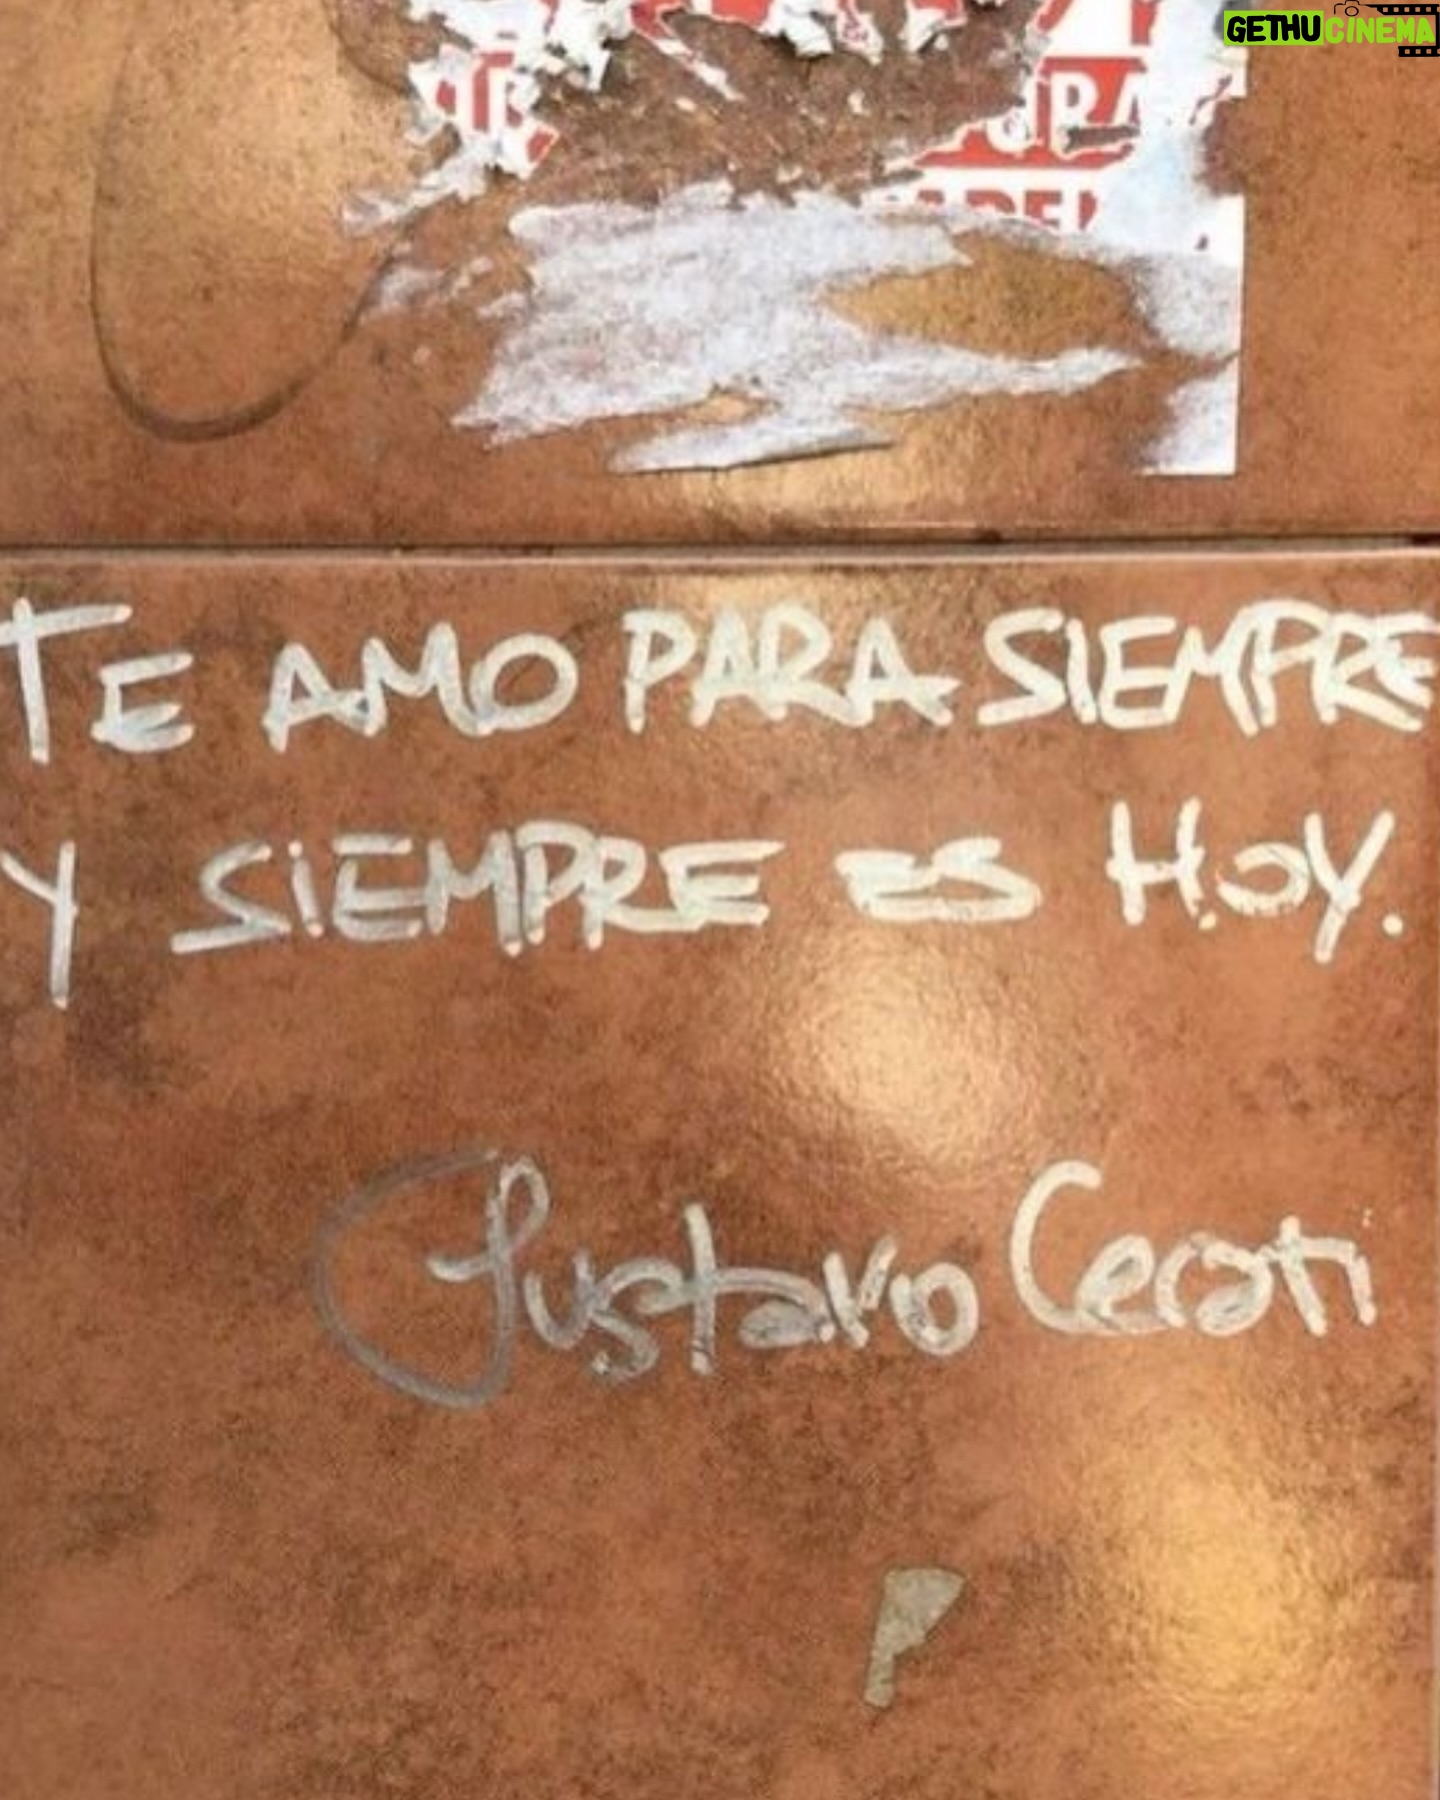 GETHUCINEMA
TE AMO PARA SIEMPRE
Y SIEMPRE ES HOY.
Gustavo Cerati